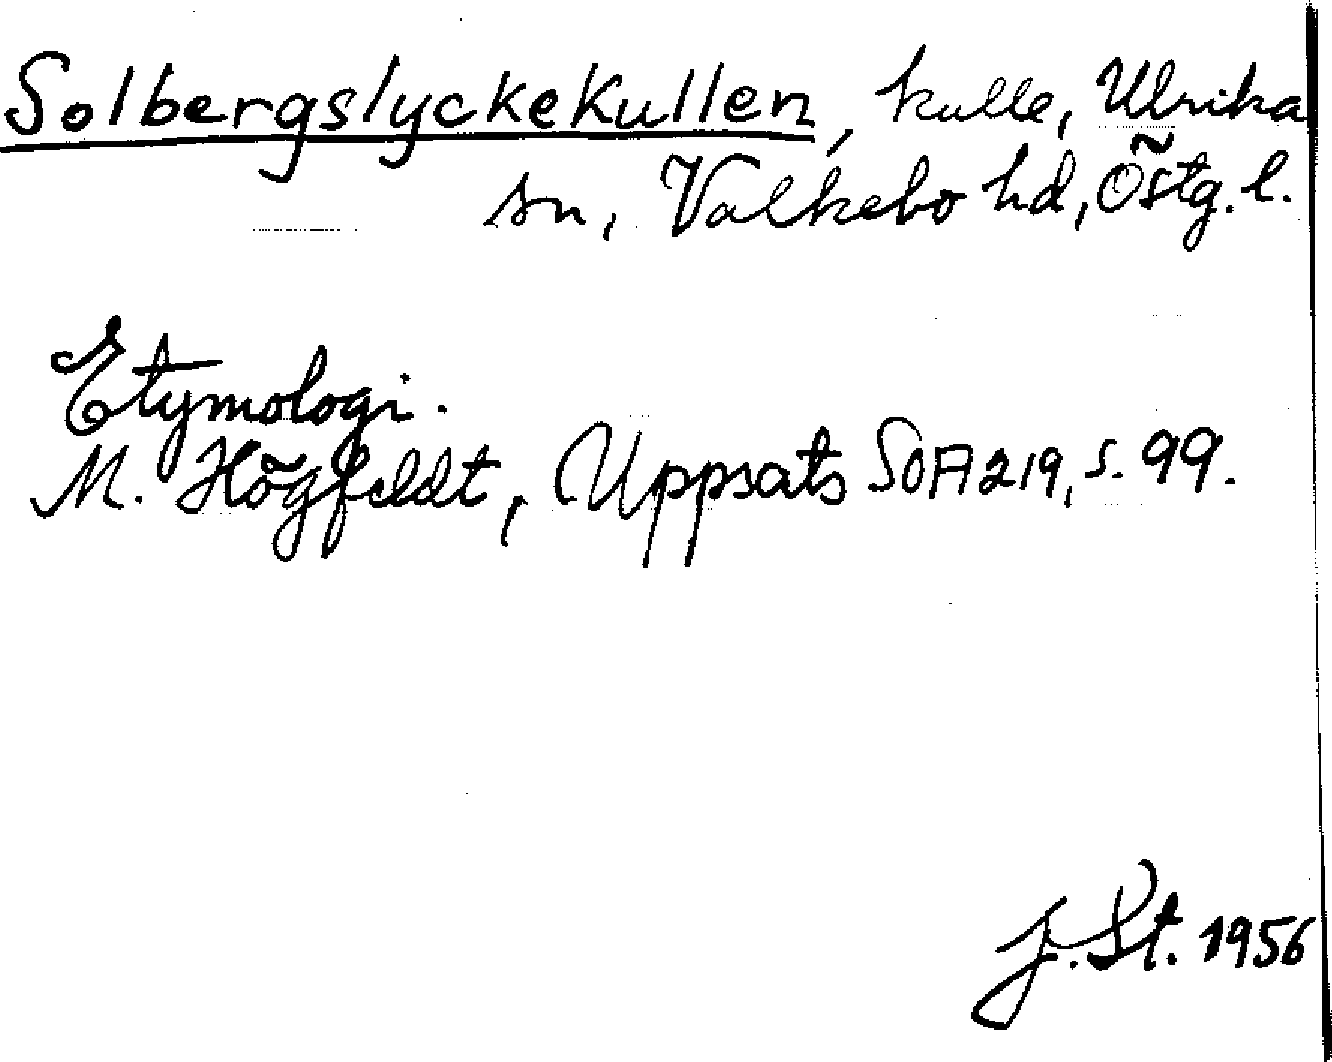 Solbergslyckekullen, kulle, Ulrika
sn, Valkebo hd, Östg. l.
Etymologi.
M. Högfeldt, Uppsats SOA 219, s. 99.
J. St. 1956